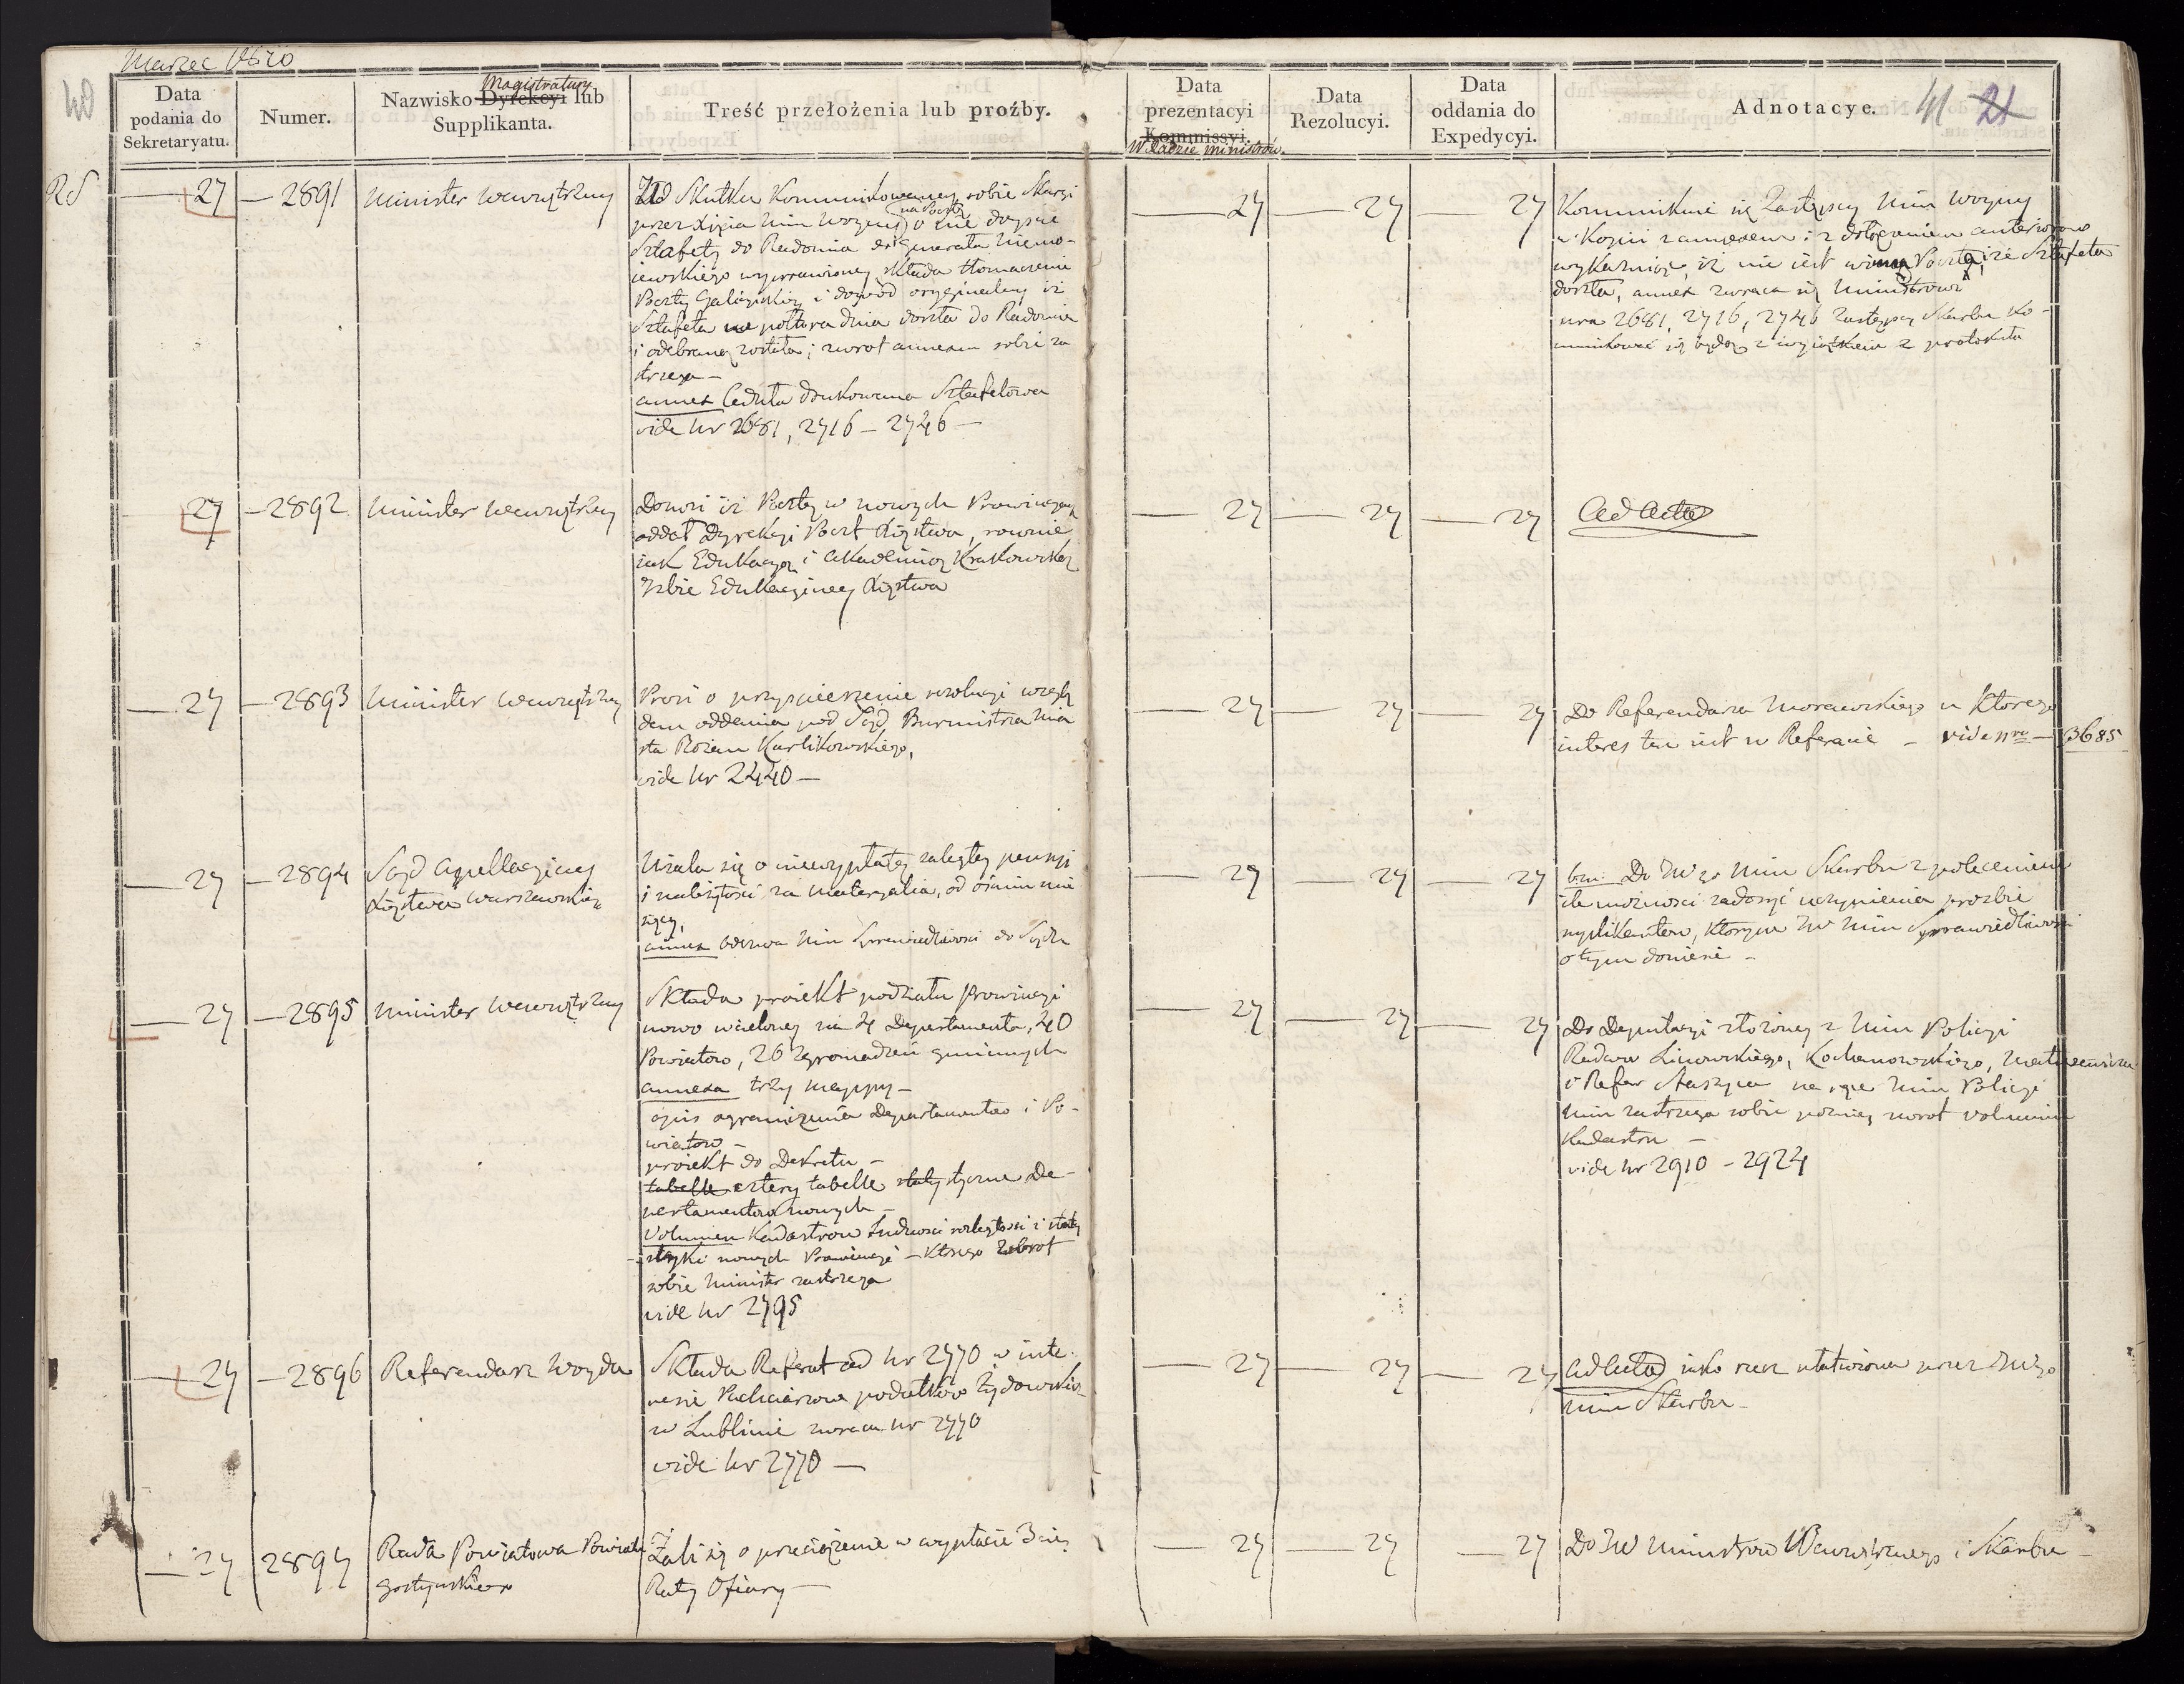 Marzec 1810
40
Data podania do Sekretaryatu.
Numer.
Nazwisko Dyrekcyi lub Supplikanta.
Magistratury
Treść przełożenia lub proźby.
Data prezentacyi Kommissyi.
W Radzie Ministrów.
Data Rezolucyi.
Data oddania do Expedycyi.
Adnotacye.
41 21
RS
27 — 2891 Minister Wewnętrzny
Skutku Kommunikowaney sobie Skargi
przez Xięcia Min Woyny na Pocztę o nie doyscie
Sztafety do Radomia do Generała Niemo-
iewskiego wyprawioney składa tłomaczenie
Poczty Galicyiskiey i dowód oryginalny iż
Sztafeta we połtora dnia doszła do Radomia
i odebraną została; zwrot annexu sobie za
strzega —
annex Ceduła drukowana Sztafetowa
vide Nr 2681, 2716 — 2746 —
27 — 27 — 27
Kommunikuie się Zastępcy Min Woyny
w Kopii z annexem i z dołączeniem anteriorów
wykazuiąc, iż nie iest winną Poczta, iże Sztafeta
doszła, annex zwraca się Ministrowi
nra 2681, 2716, 2746 Zastępcy Skarbu ko-
mmunikować się będą z wyiątkiem z protokułu
27 — 2892 Minister Wewnętrzny
Donosi iż Poczty w nowych Prowincyach
oddał Dyrekcyi Poczt Xięstwa, rownie
iak Edukacyą i Akademią Krakowską
Izbie Edukacyiney Xięstwa
27 — 27 — 27
Ad Acta
27 — 2893 Minister Wewnętrzny
Prosi o przyspieszenie rezolucyi wzglę
dem oddania pod Sąd Burmistrza Mia
sta Rożan Karlikowskiego,
vide Nr 2440 —
27 — 27 — 27
Do Referendarza Morawskiego u ktorego
interes ten iest w Referacie — vide nro — 3685
27 — 2894 Sąd Apellacyiny
Xięstwa Warszawskieg
Użala się o niewypłatę zaległey pensyi
i należytosci za materyalia, od ośmiu mie
sięcy,
annex odezwa Min Sprawiedliwosci do Sądu
27 — 27 — 27
bm. Do JWgo Min Skarbu z poleceniem
ile możnosci zadosyć uczynienia prozbie
suplikantow, ktorym JW Min Sprawiedliwosci
o tym doniesie —
27 — 2895 Minister Wewnętrzny
Składa proiekt podziału prowincyi
nowo wcieloney na 4 Departamenta, 40
Powiatow, 26 Zgromadzeń gminnych
annexa trzy mappy —
opis ograniczenia Departamentow i Po-
wiatow —
proiekt do Dekretu —
tabelle cztery tabelle statystyczne De-
partamentow nowych —
Volumen Kadastrow ludnosci rozległosci i staty
styki nowych Prowincyi — ktorego zwrot
sobie Minister zastrzega
vide Nr 2795
27 — 27 — 27
Do Deputacyi złożoney z Min Policyi
Radcow Linowskiego, Kochanowskiego, Matuszewicza
i Refer Staszyca na ręce Min Policyi
Min zastrzega sobie pozniey zwrot volumin
Kadastru —
vide Nr 2910 — 2924
27 — 2896 Referendarz Woyda
Składa Referat ad Nr 2770 w inte-
resie Pachciarzow podatków Żydowskich
w Lublinie zwraca Nr 2770
vide Nr 2770 —
27 — 27 — 27
Ad Acta iako rzecz ułatwiona przez JWgo
Min Skarbu —
27 2897 Rada Powiatowa Powiatu
Gostynskiego
Żali się o przeciążenie w wypłacie 3ciey
Raty Ofiary —
27 — 27 — 27
Do JW Ministrow Wewnętrznego i Skarbu —